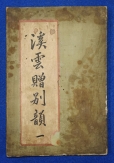 溪雲贈別韻一